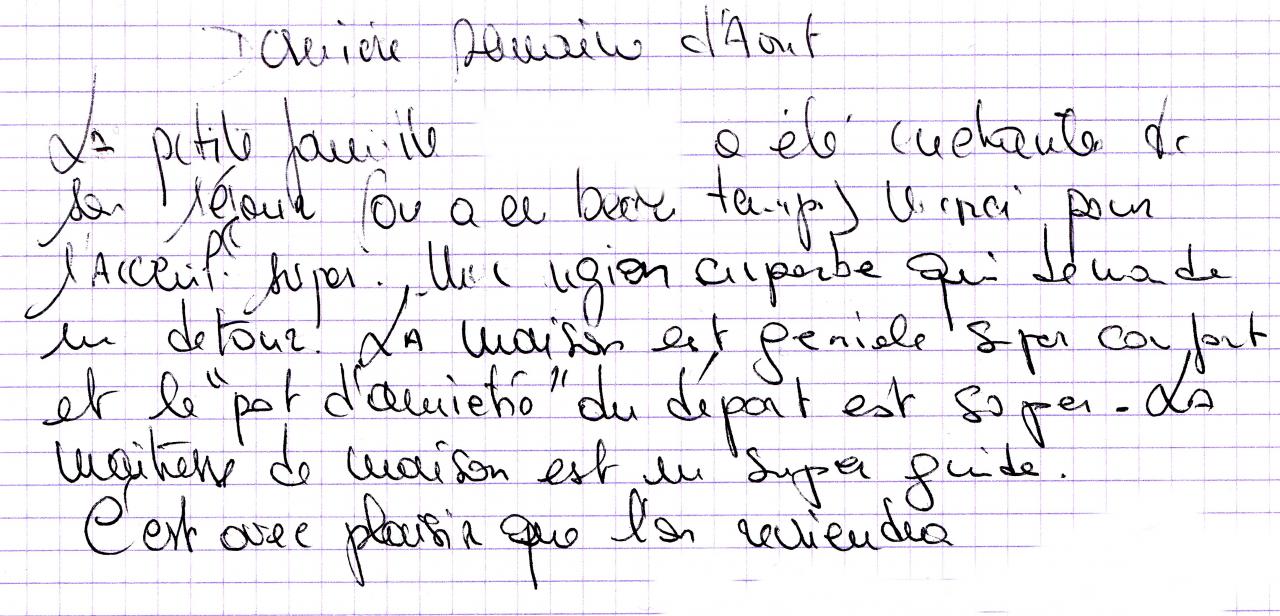 Dernière semaine d'Aout
LA petite famille a été enchantée de
son séjour (on a eu beau temps) Merci pour
l'Accueil super. Une région superbe qui demande
un detour. LA maison est geniale super confort
et le "pot d'amitié" du départ est super - LA
maitresse de maison est un super guide.
C'est avec plaisir que l'on reviendra